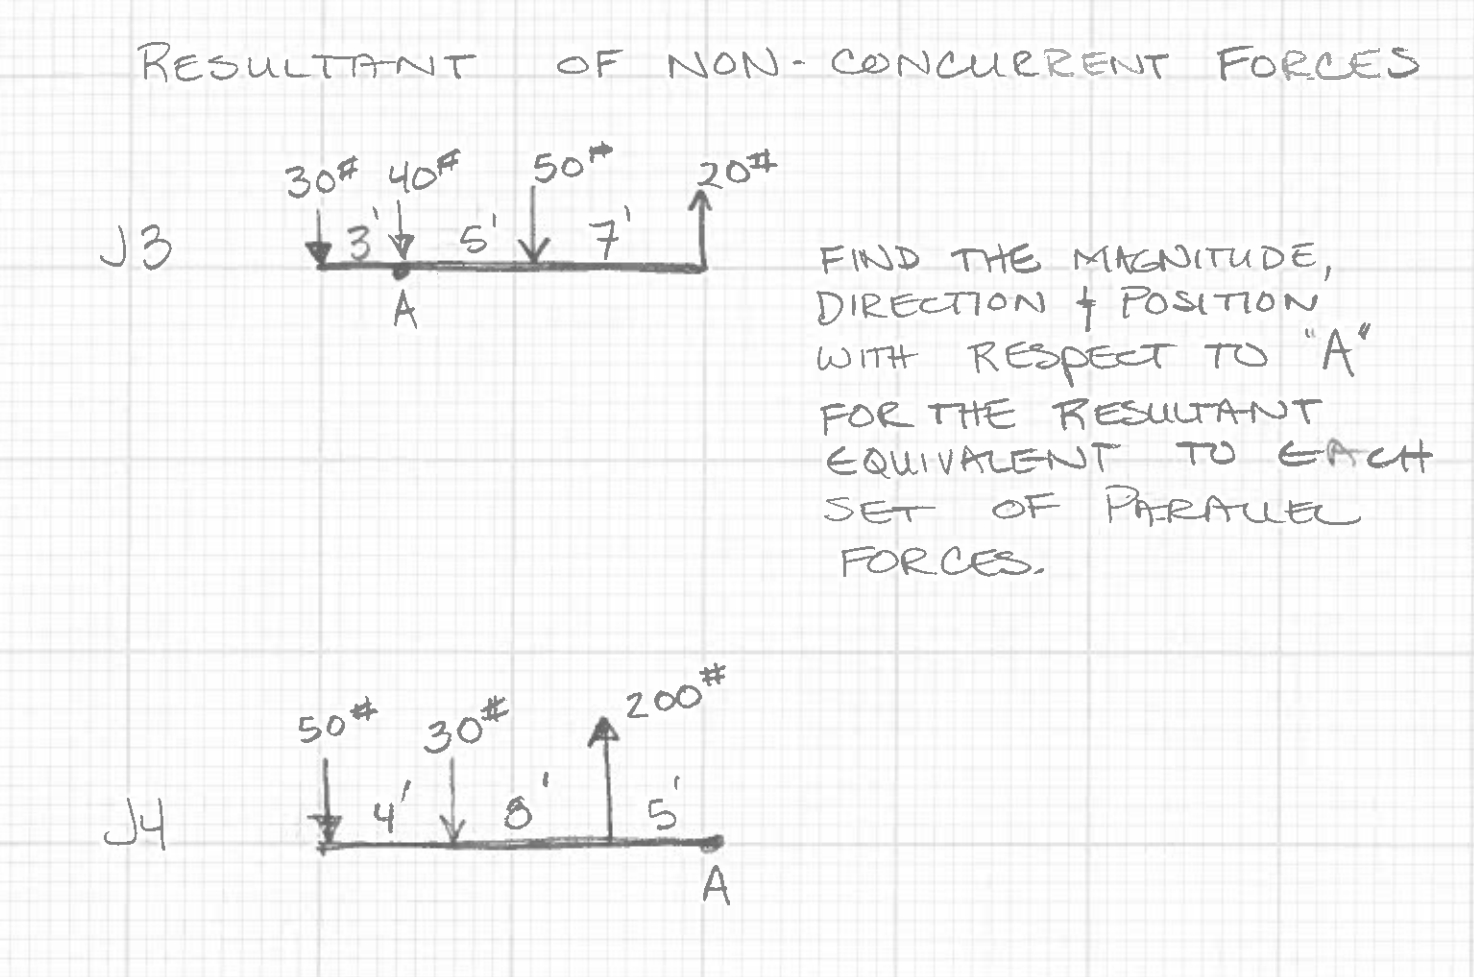 RESULTANT OF NON-CONCURRENT FORCES
30# 40# 50# 20#
J3 3' 5' 7'
A
FIND THE MAGNITUDE,
DIRECTION & POSITION
WITH RESPECT TO "A"
FOR THE RESULTANT
EQUIVALENT TO EACH
SET OF PARALLEL
FORCES.
50# 30# 200#
J4 4' 8' 5'
A